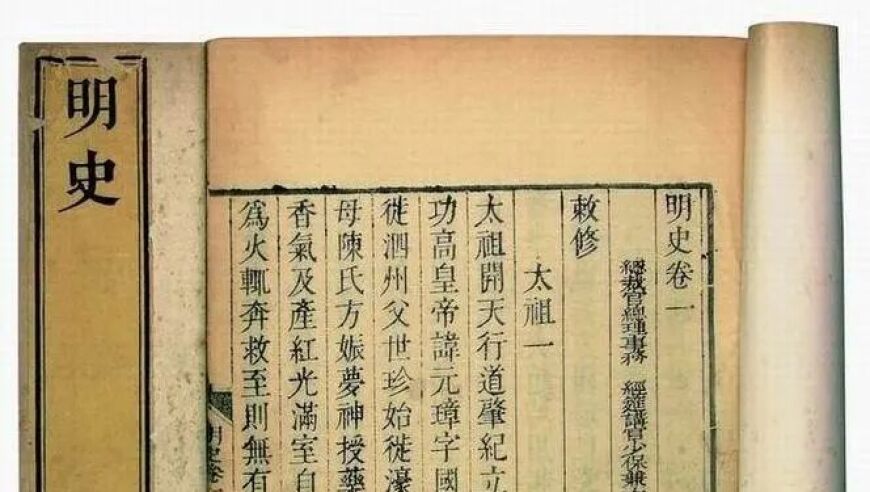 明史
明史卷一
總裁官總理事務 經筵講官少保兼
敕修
太祖一
太祖開天行道肇紀立
功高皇帝諱元璋字國
徙泗州父世珍始徙濠
母陳氏方娠夢神授藥
香氣及產紅光滿室自
為火輒奔救至則無有
明史卷